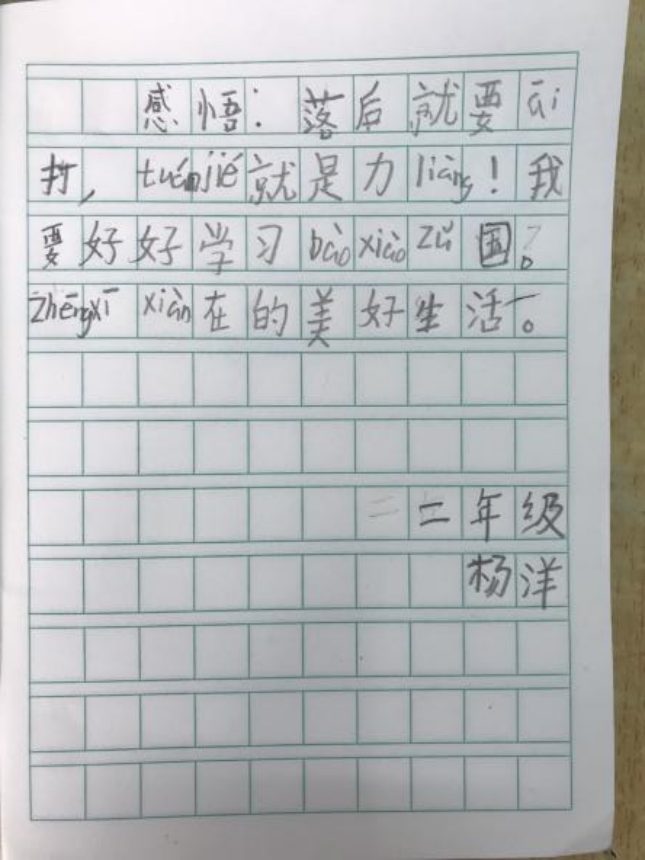 感悟：落后就要āi
打，tuánjié就是力liàng！我
要好好学习bàoxiào zǔ国。
zhēngxī xiàn在的美好生活。
二年级
杨洋